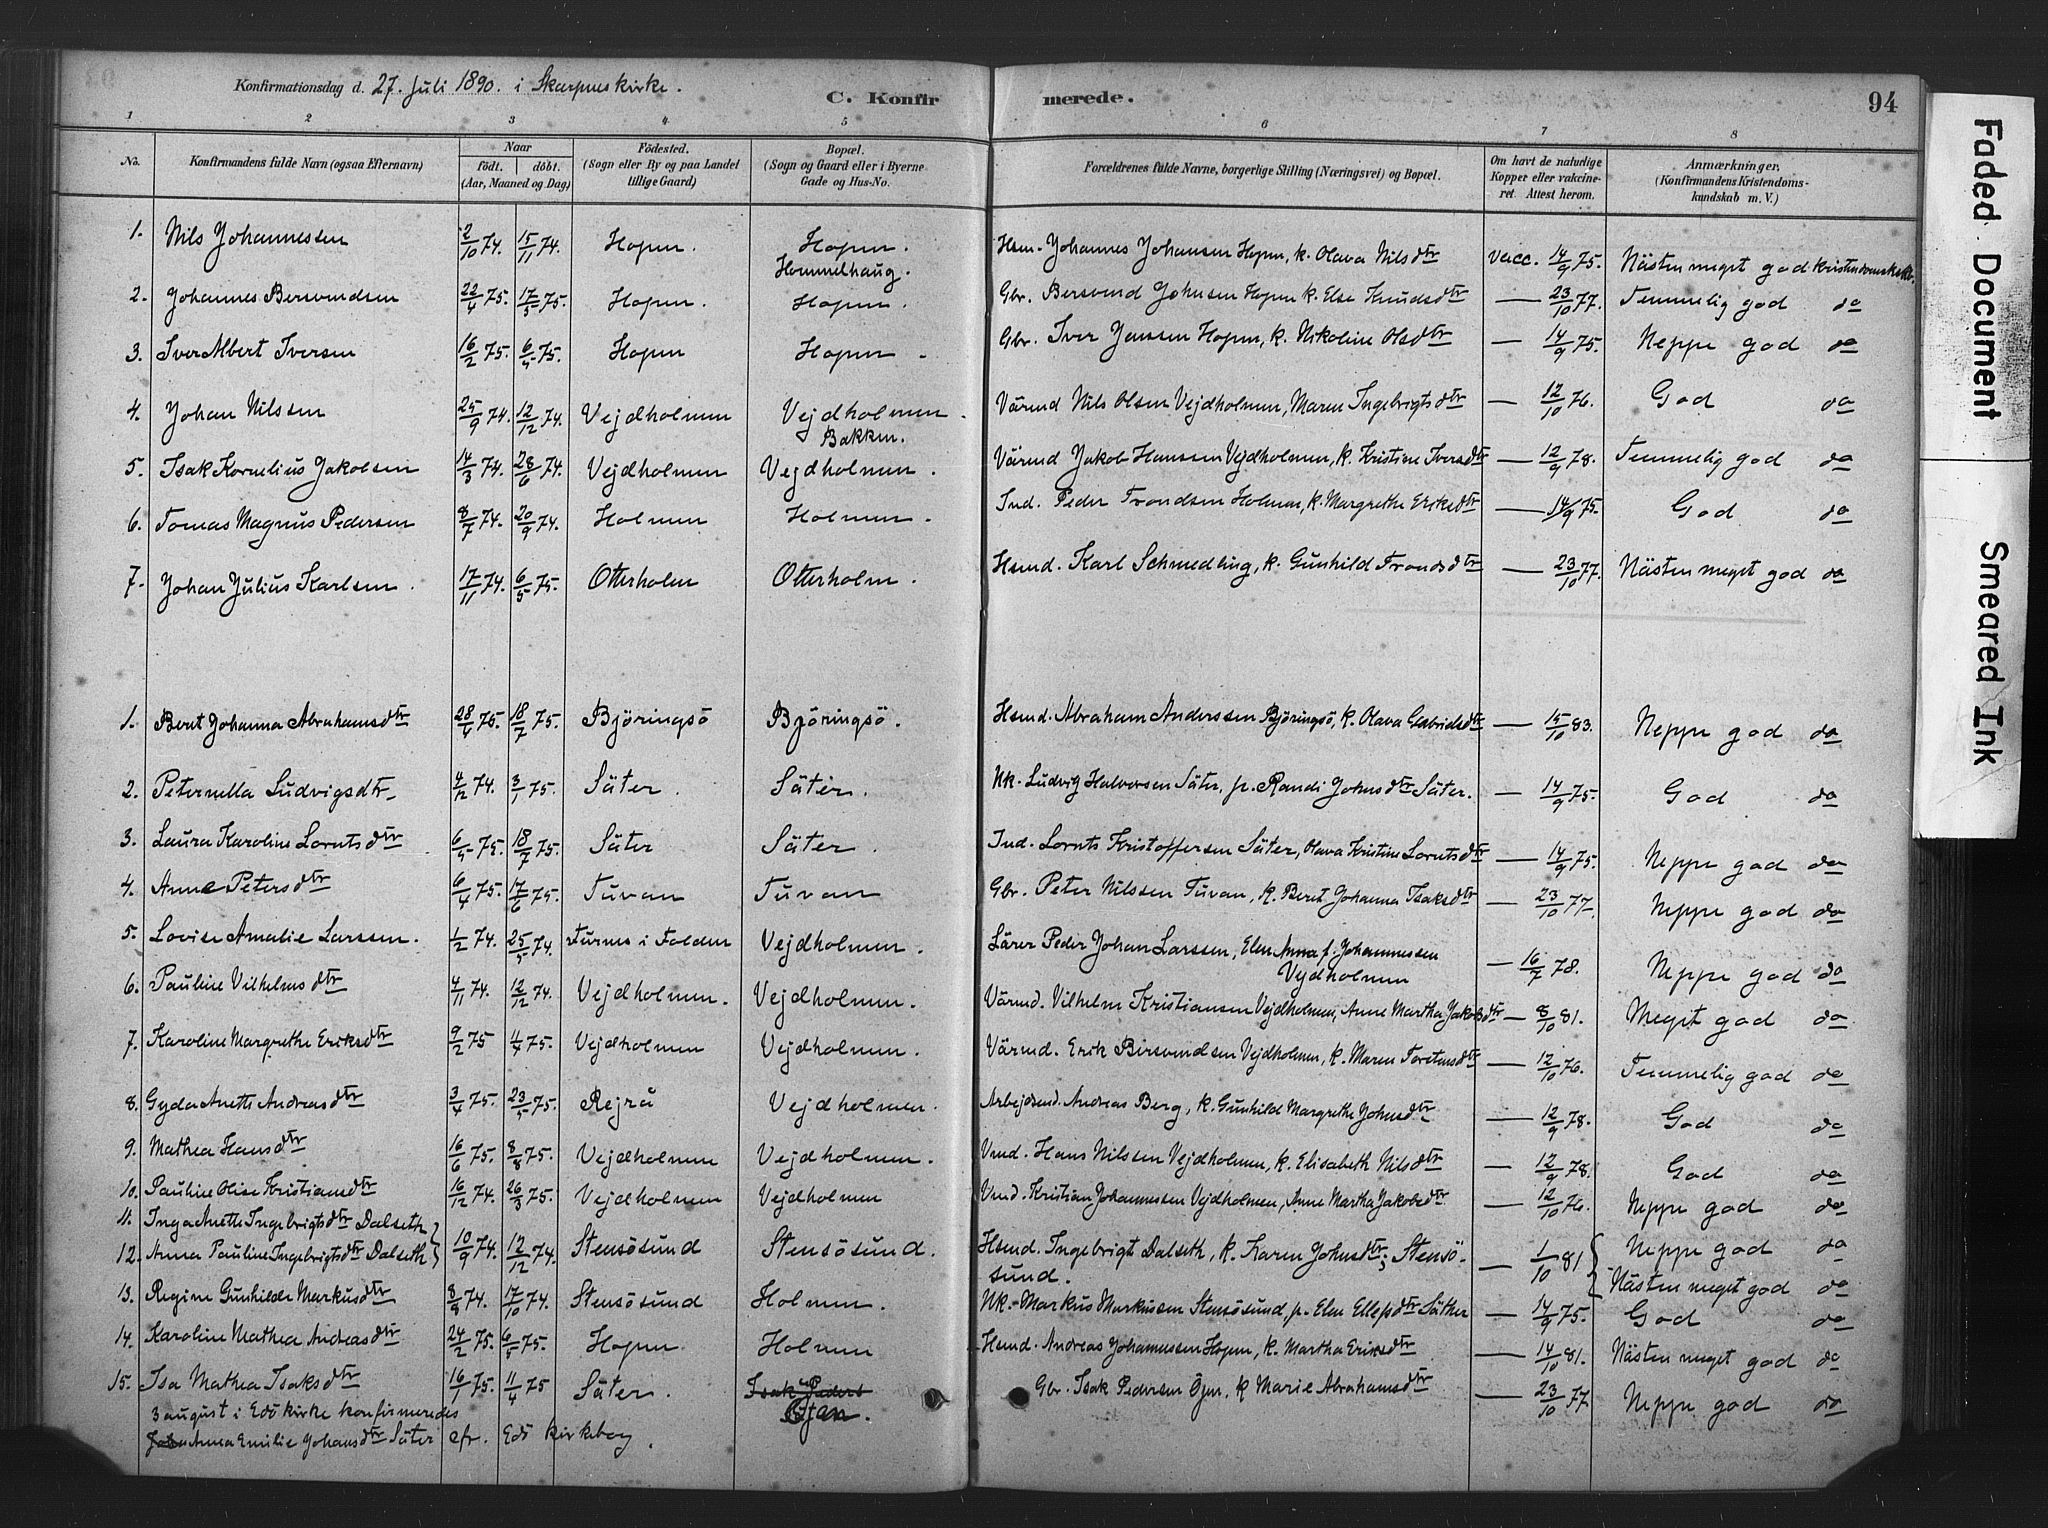 Konfirmationsdag d. 27. Juli 1890. i Skarpneskirke.
C. Konfirmerede.
94
1 2 3 4 5 6 7 8
No. Konfirmandens fulde Navn (ogsaa Efternavn) Naar født. døbt. (Aar, Maaned og Dag) Fødested. (Sogn eller By og paa Landet tillige Gaard) Bopæl. (Sogn og Gaard eller i Byerne Gade og Hus-No. Forældrenes fulde Navne, borgerlige Stilling (Næringsvei) og Bopæl. Om havt de naturlige Kopper eller vaccineret. Attest herom. Anmærkninger, (Konfirmandens Kristendomskundskab m. V.)
1. Nils Johannessen 2/10 74. 15/11 74. Hopen. Hopen. Hommelhaug. Hsm. Johannes Johansen Hopen, k. Olava Nilsdtr Vacc. 14/9 75. Nästen meget god kristendomsk.
2. Johannes Bersvendsen 22/4 75. 17/5 75. Hopen. Hopen. Gbr. Bersvend Johnsen Hopen k. Else Knudsdtr — 23/10 77. Temmelig god do
3. Iver Albert Iversen 16/2 75. 6/5 75. Hopen Hopen Gbr. Iver Jenssen Hopen, k. Nikoline Olsdtr — 14/9 75. Neppe god do
4. Johan Nilssen 25/9 74. 12/12 74. Vejdholmen Vejdholmen. Bakken. Värmd Nils Olsen Vejdholmen, Maren Ingebrigtsdtr — 12/10 76. God do
5. Isak Kornelius Jakobsen 14/3 74. 28/6 74. Vejdholmen Vejdholmen. Värmd Jakob Hanssen Vejdholmen, k. Kristine Iversdtr — 12/9 78. Temmelig god do
6. Tomas Magnus Pedersen 8/7 74. 20/9 74. Holmen Holmen. Ind. Peder Trondsen Holmen, k. Margrethe Eriksdtr — 14/9 75. God do
7. Johan Julius Karlsen. 17/11 74. 6/5 75. Otterholm Otterholm. Hsmd. Karl Schmedling, k. Gunhild Trondsdtr — 23/10 77. Nästen meget god do
1. Berit Johanna Abrahamsdtr 28/4 75. 18/7 75. Björingsö Björingsö. Hsmd. Abraham Anderssen Björingsö, k. Olava Gabrielsdtr — 15/10 83. Neppe god do
2. Peternella Ludvigsdtr 4/12 74. 3/1 75. Säter. Säter. Nk. Ludvig Halvorsen Säter, p. Randi Johnsdtr Säter. — 14/9 75. God do
3. Laura Karoline Lorntsdtr 6/5 75. 18/7 75. Säter Säter. Ind. Lornts Kristoffersen Säter, Olava Kristine Lorntsdtr — 14/9 75. Neppe god do
4. Anne Petersdtr 6/4 75. 17/6 75. Tuvan Tuvan Gbr. Peter Nilssen Tuvan, k. Berit Johanna Isaksdtr — 23/10 77. Neppe god do
5. Lovise Amalie Larssen. 1/2 74. 25/5 74. i Folden Vejdholmen. Lärer Peder Johan Larssen, Elen Anna f. Johannessen Vejdholmen — 16/7 78. Neppe god do
6. Pauline Vilhelmsdtr 4/11 74. 12/12 74. Vejdholmen. Vejdholmen. Värmd. Vilhelm Kristiansen Vejdholmen, Anne Martha Jakobsdtr — 8/10 81. Meget god do
7. Karoline Margrethe Eriksdtr 9/2 75 11/4 75. Vejdholmen Vejdholmen. Värmd. Erik Bersvendsen Vejdholmen, k. Maren Torstensdtr — 12/10 76. Temmelig god do
8. Gyda Anette Andreasdtr 3/4 75. 23/5 75. Rejrå Vejdholmen. Arbejdsmd. Andreas Berg, k. Gunhild Margrethe Johnsdtr — 12/9 78. God do
9. Mathea Hansdtr 16/6 75. 8/8 75. Vejdholmen Vejdholmen. Vmd. Hans Nilssen Vejdholmen, k. Elisabeth Nilsdtr — 12/9 78. God do
10. Pauline Olise Kristiansdtr 16/12 74. 26/3 75. Vejdholmen Vejdholmen Vmd. Kristian Johannessen Vejdholmen, Anne Martha Jakobsdtr — 12/10 76. Neppe god do
11. Inga Anette Ingebrigtsdtr Dalseth
12. Anna Pauline Ingebrigtsdtr Dalseth 10/9 74. 12/12 74. Stensösund Stensösund. Hsmd. Ingebrigt Dalseth, k. Karen Johnsdtr, Stensösund. — 1/10 81 Neppe god do Nästen meget god do
13. Regine Gunhilde Markusdtr 8/9 74. 17/10 74. Stensösund Holmen. Nk. Markus Markussen Stensösund, p. Elen Ellefsdtr Säther — 14/9 75. God do
14. Karoline Mathea Andreasdtr 24/2 75. 6/5 75. Hopen. Holmen Hsmd. Andreas Johannessen Hopen, k. Martha Eriksdtr — 14/10 81. Nästen meget god do
15. Isa Mathea Isaksdtr 16/1 75. 11/4 75 Säter. Isak Peders Öjan. Gbr. Isak Pedersen Öjen, k Marie Abrahamsdtr — 23/10 77 Neppe god do
3 august i Edö kirke konfirmeredes
Anna Emilie Johansdtr Säter cfr. Edö kirkebog.
Faded Document Smeared Ink